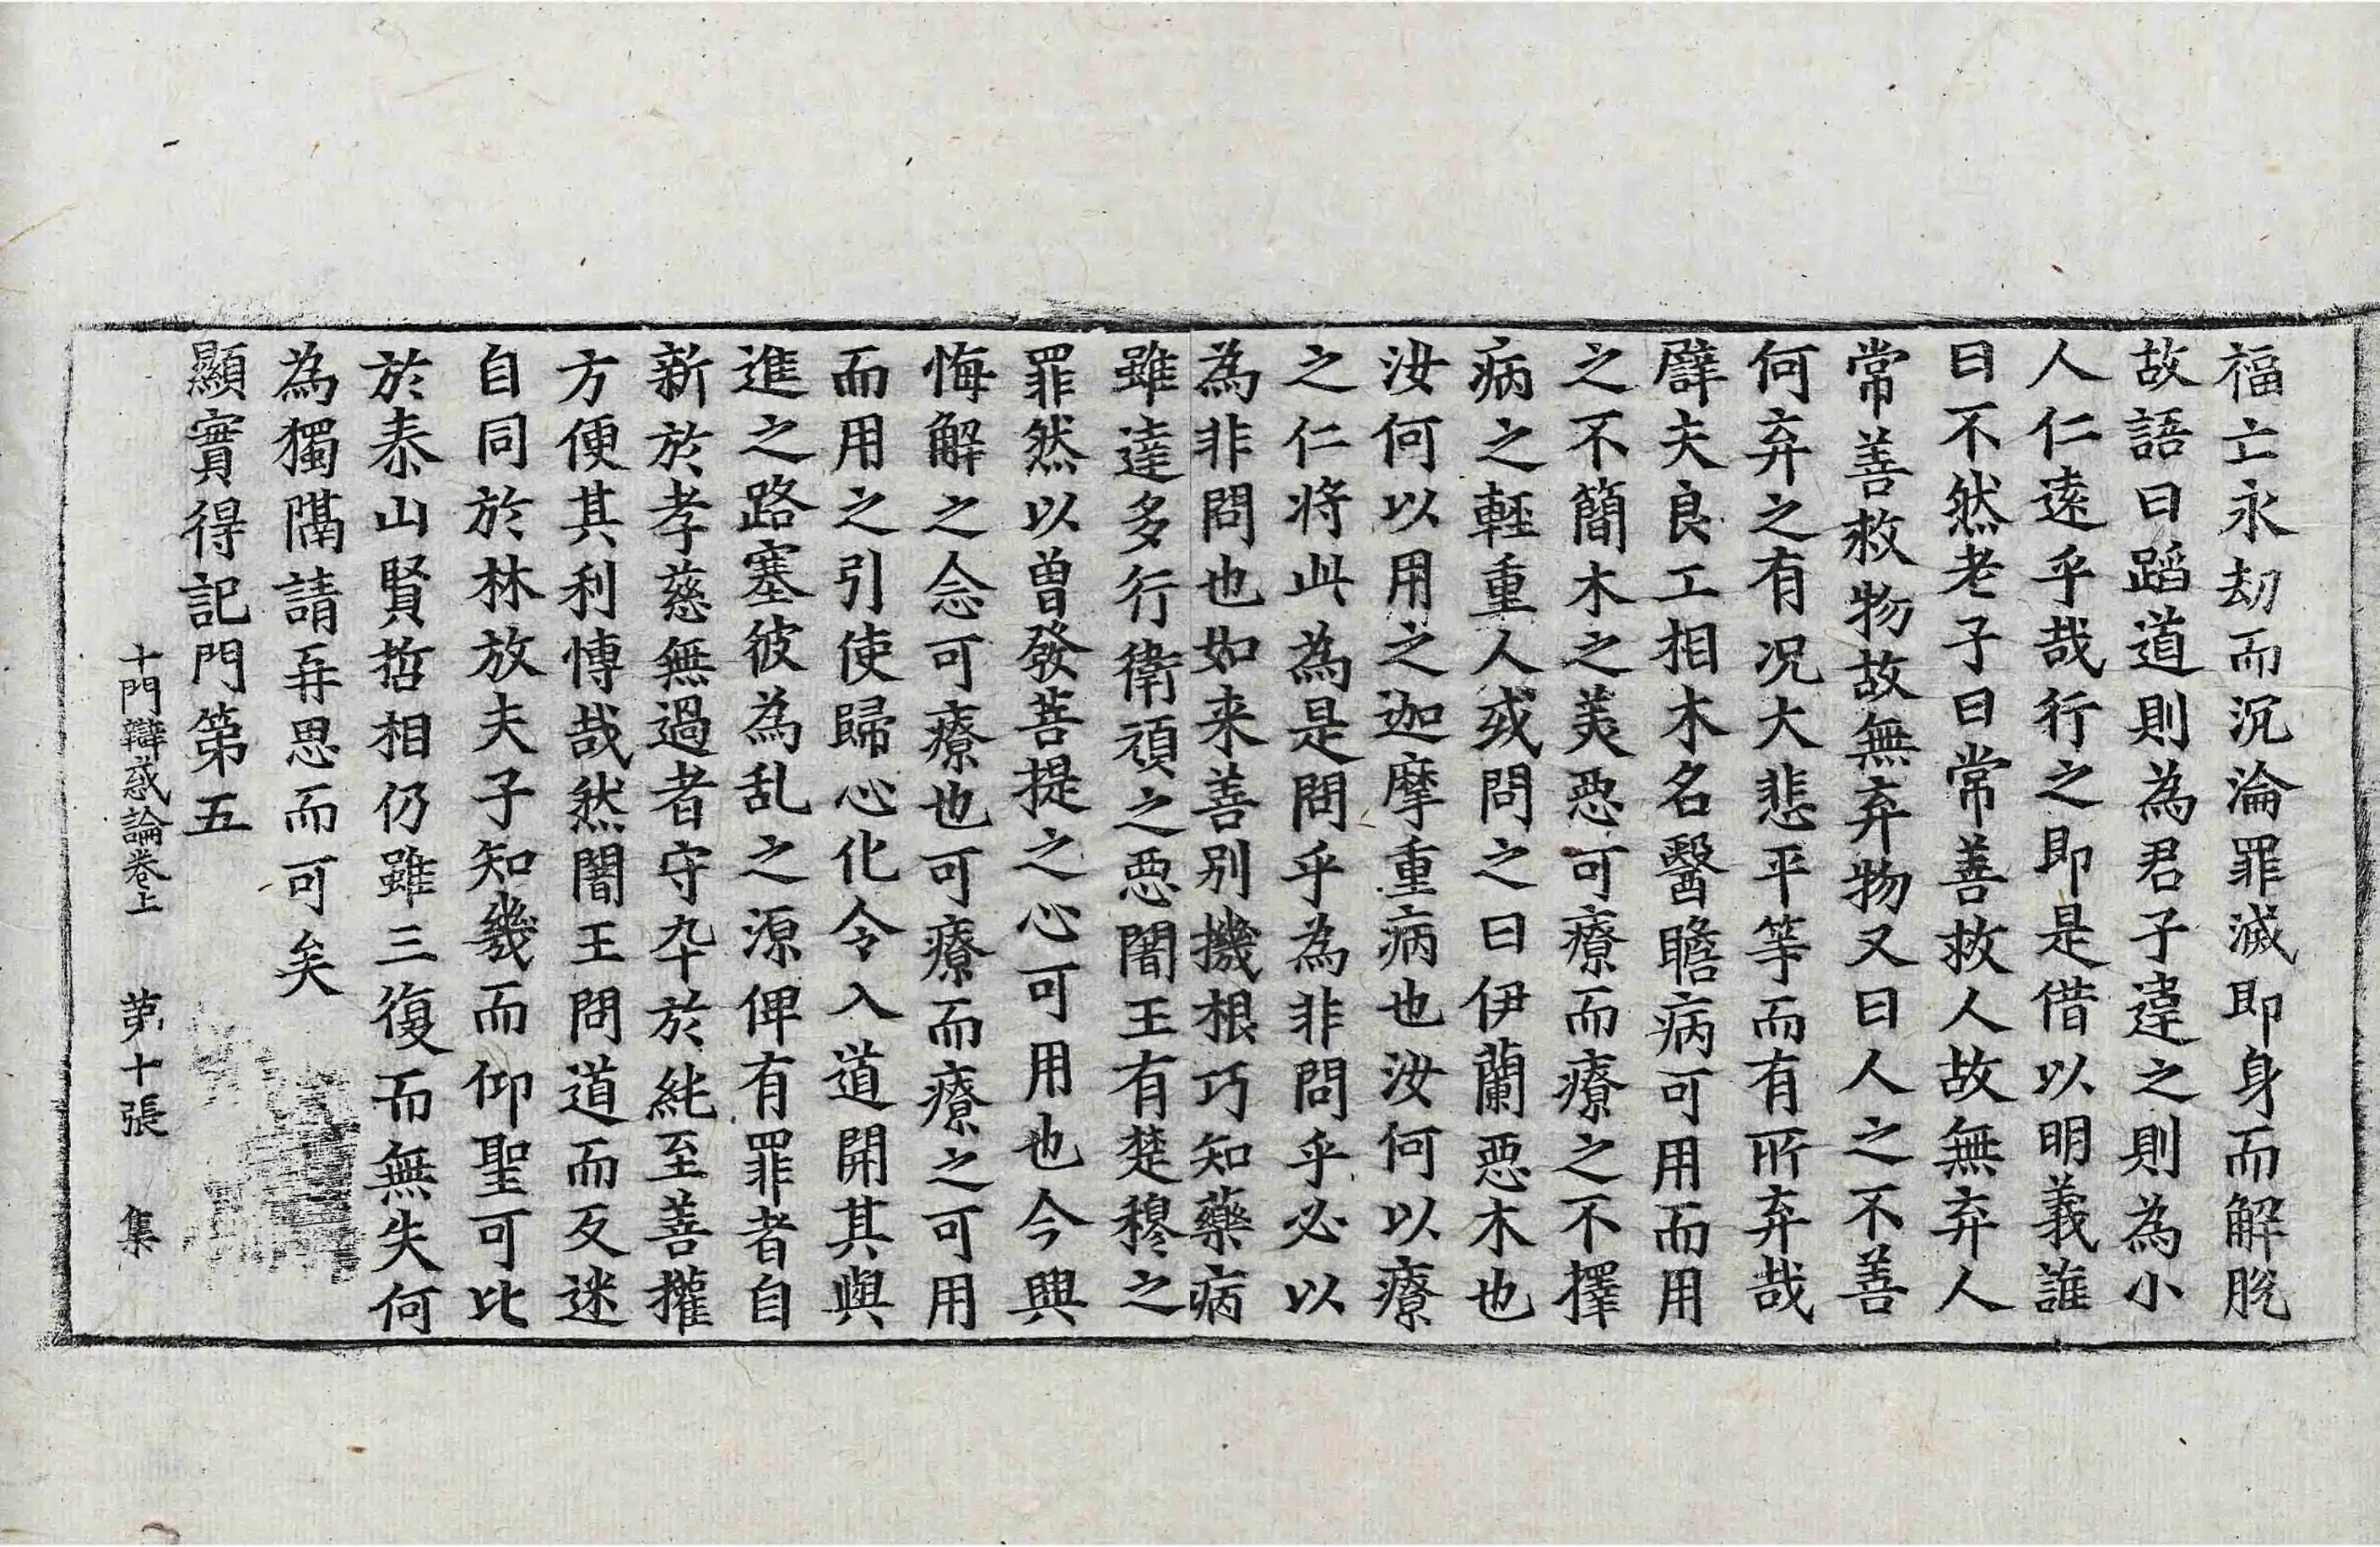 福亡永劫而沉淪罪滅即身而解脫
故語曰蹈道則為君子違之則為小
人仁遠乎哉行之即是借以明義誰
曰不然老子曰常善救人故無弃人
常善救物故無弃物又曰人之不善
何弃之有况大悲平等而有所弃哉
譬夫良工相木名醫瞻病可用而用
之不簡木之美惡可療而療之不擇
病之輕重人或問之曰伊蘭惡木也
汝何以用之迦摩重病也汝何以療
之仁將此為是問乎為非問乎必以
為非問也如来善別機根巧知藥病
雖達多行衛頑之惡闍王有楚穆之
罪然以曽發菩提之心可用也今興
悔解之念可療也可療而療之可用
而用之引使歸心化令入道開其與
進之路塞彼為乱之源俾有罪者自
新於孝慈無過者守卒於純至善權
方便其利愽哉然闍王問道而反迷
自同於林放夫子知幾而仰聖可比
於泰山賢哲相仍雖三復而無失何
為獨隔請再思而可矣
顯實得記門第五
十門辯惑論卷上　第十張　集